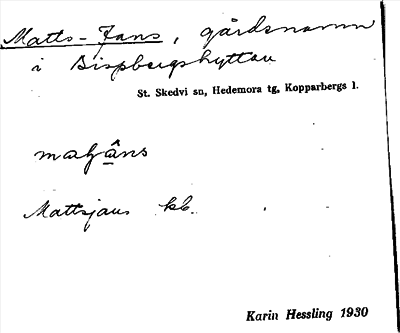 Matts-Jans, gårdsnamn
i Bispbergshyttan
St. Skedvi sn, Hedemora tg, Kopparbergs l.
Mattsjans kb.
Karin Hessling 1930